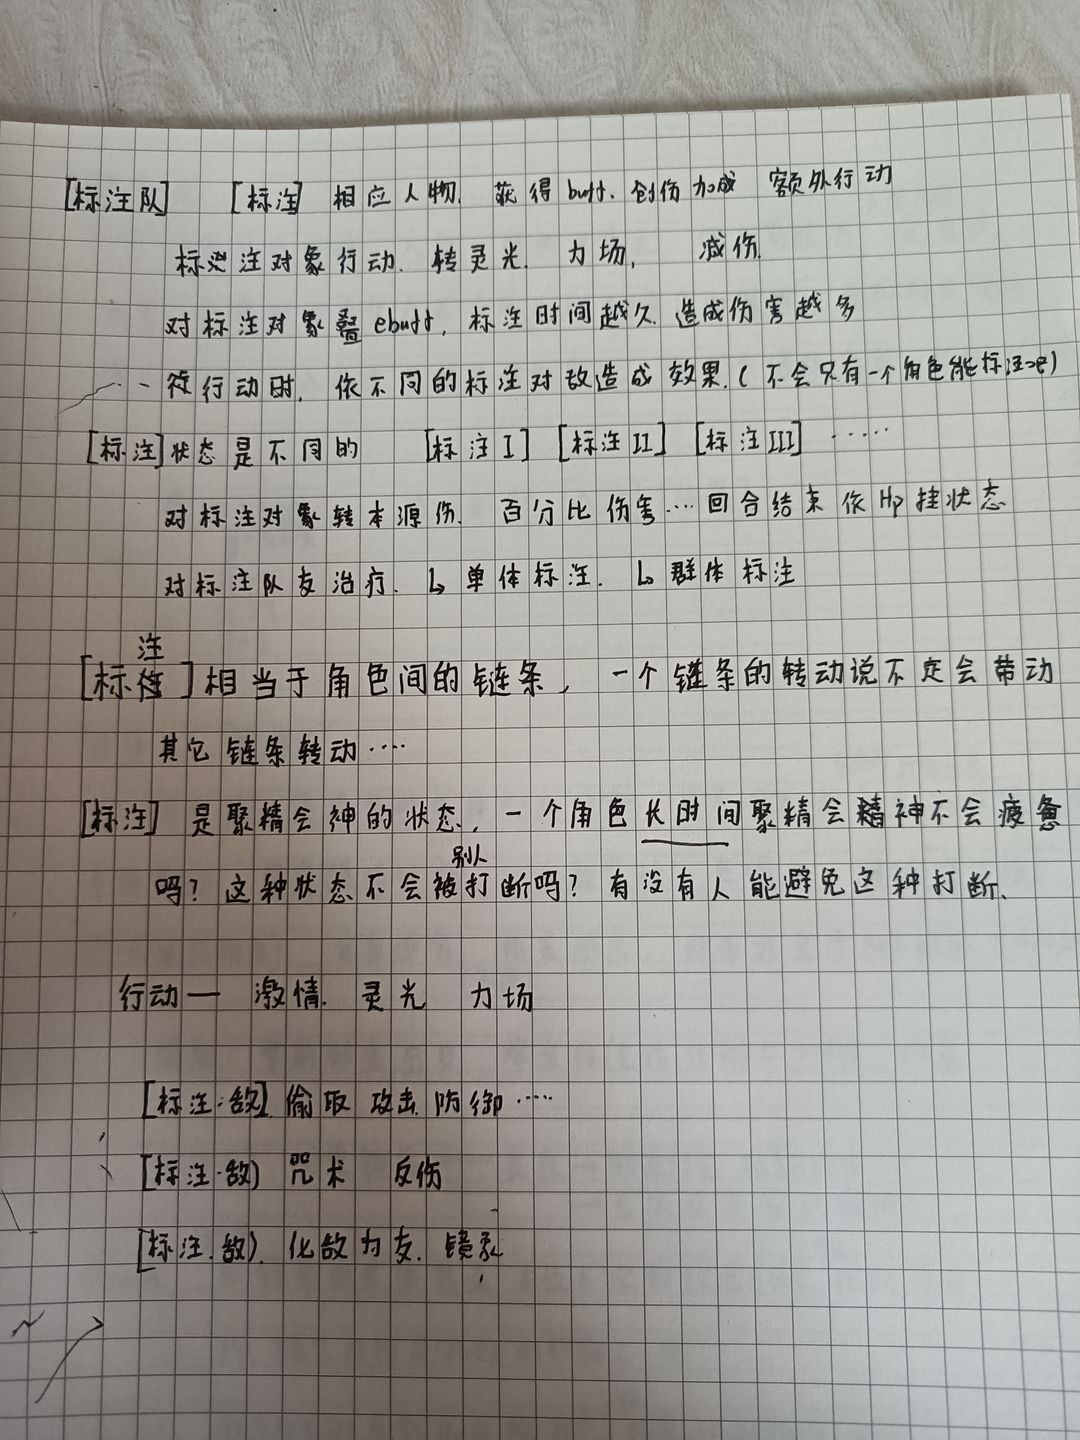 [标注队] [标注] 相应人物. 获得buff. 创伤加成 额外行动
标注对象行动. 转灵光. 力场, 减伤.
对标注对象叠ebuff, 标注时间越久. 造成伤害越多
行动时, 依不同的标注对敌造成效果.(不会只有一个角色能标注吧)
[标注]状态是不同的 [标注I] [标注II] [标注III] ……
对标注对象转本源伤. 百分比伤害…. 回合结束依Hp挂状态
对标注队友治疗. ↳单体标注. ↳群体标注
[标注]相当于角色间的链条, 一个链条的转动说不定会带动
其它链条转动….
[标注] 是聚精会神的状态, 一个角色长时间聚精会神不会疲惫
吗? 这种状态不会被别人打断吗? 有没有人能避免这种打断.
行动— 激情. 灵光 力场
[标注·敌] 偷取 攻击. 防御….
[标注·敌) 咒术 反伤
[标注.敌). 化敌为友. 镜象